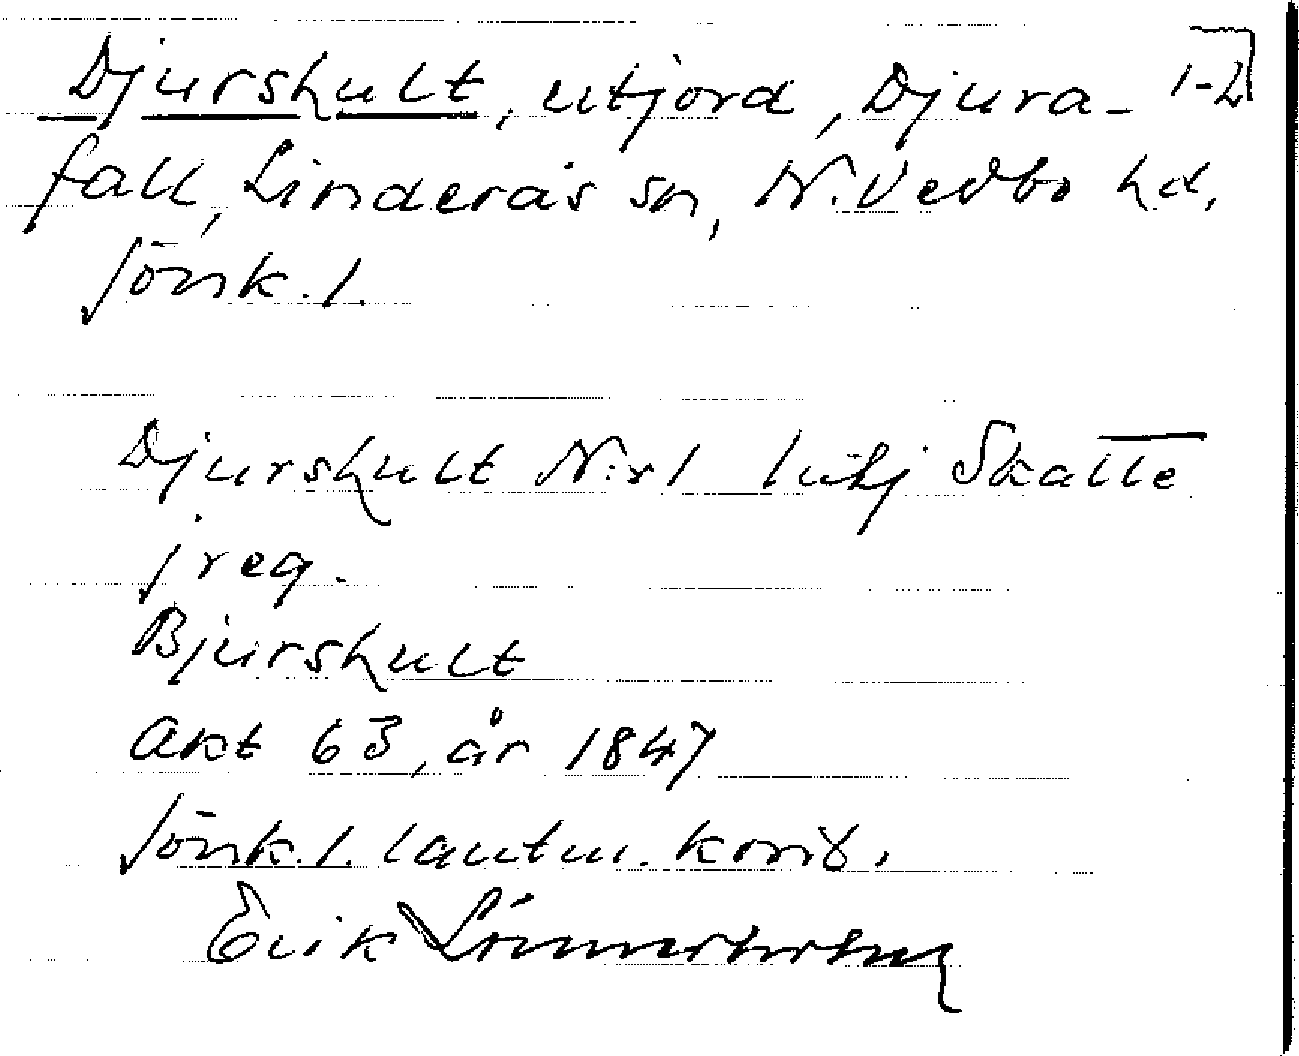 Djurshult, utjord, Djura- 1-2
fall, Linderås sn, N. Vedbo hd,
Jönk. l.
Djurshult N:r 1 Skatte
j reg.
Bjurshult
akt 63, år 1847
Jönk. l. lantm. kont.
Erik